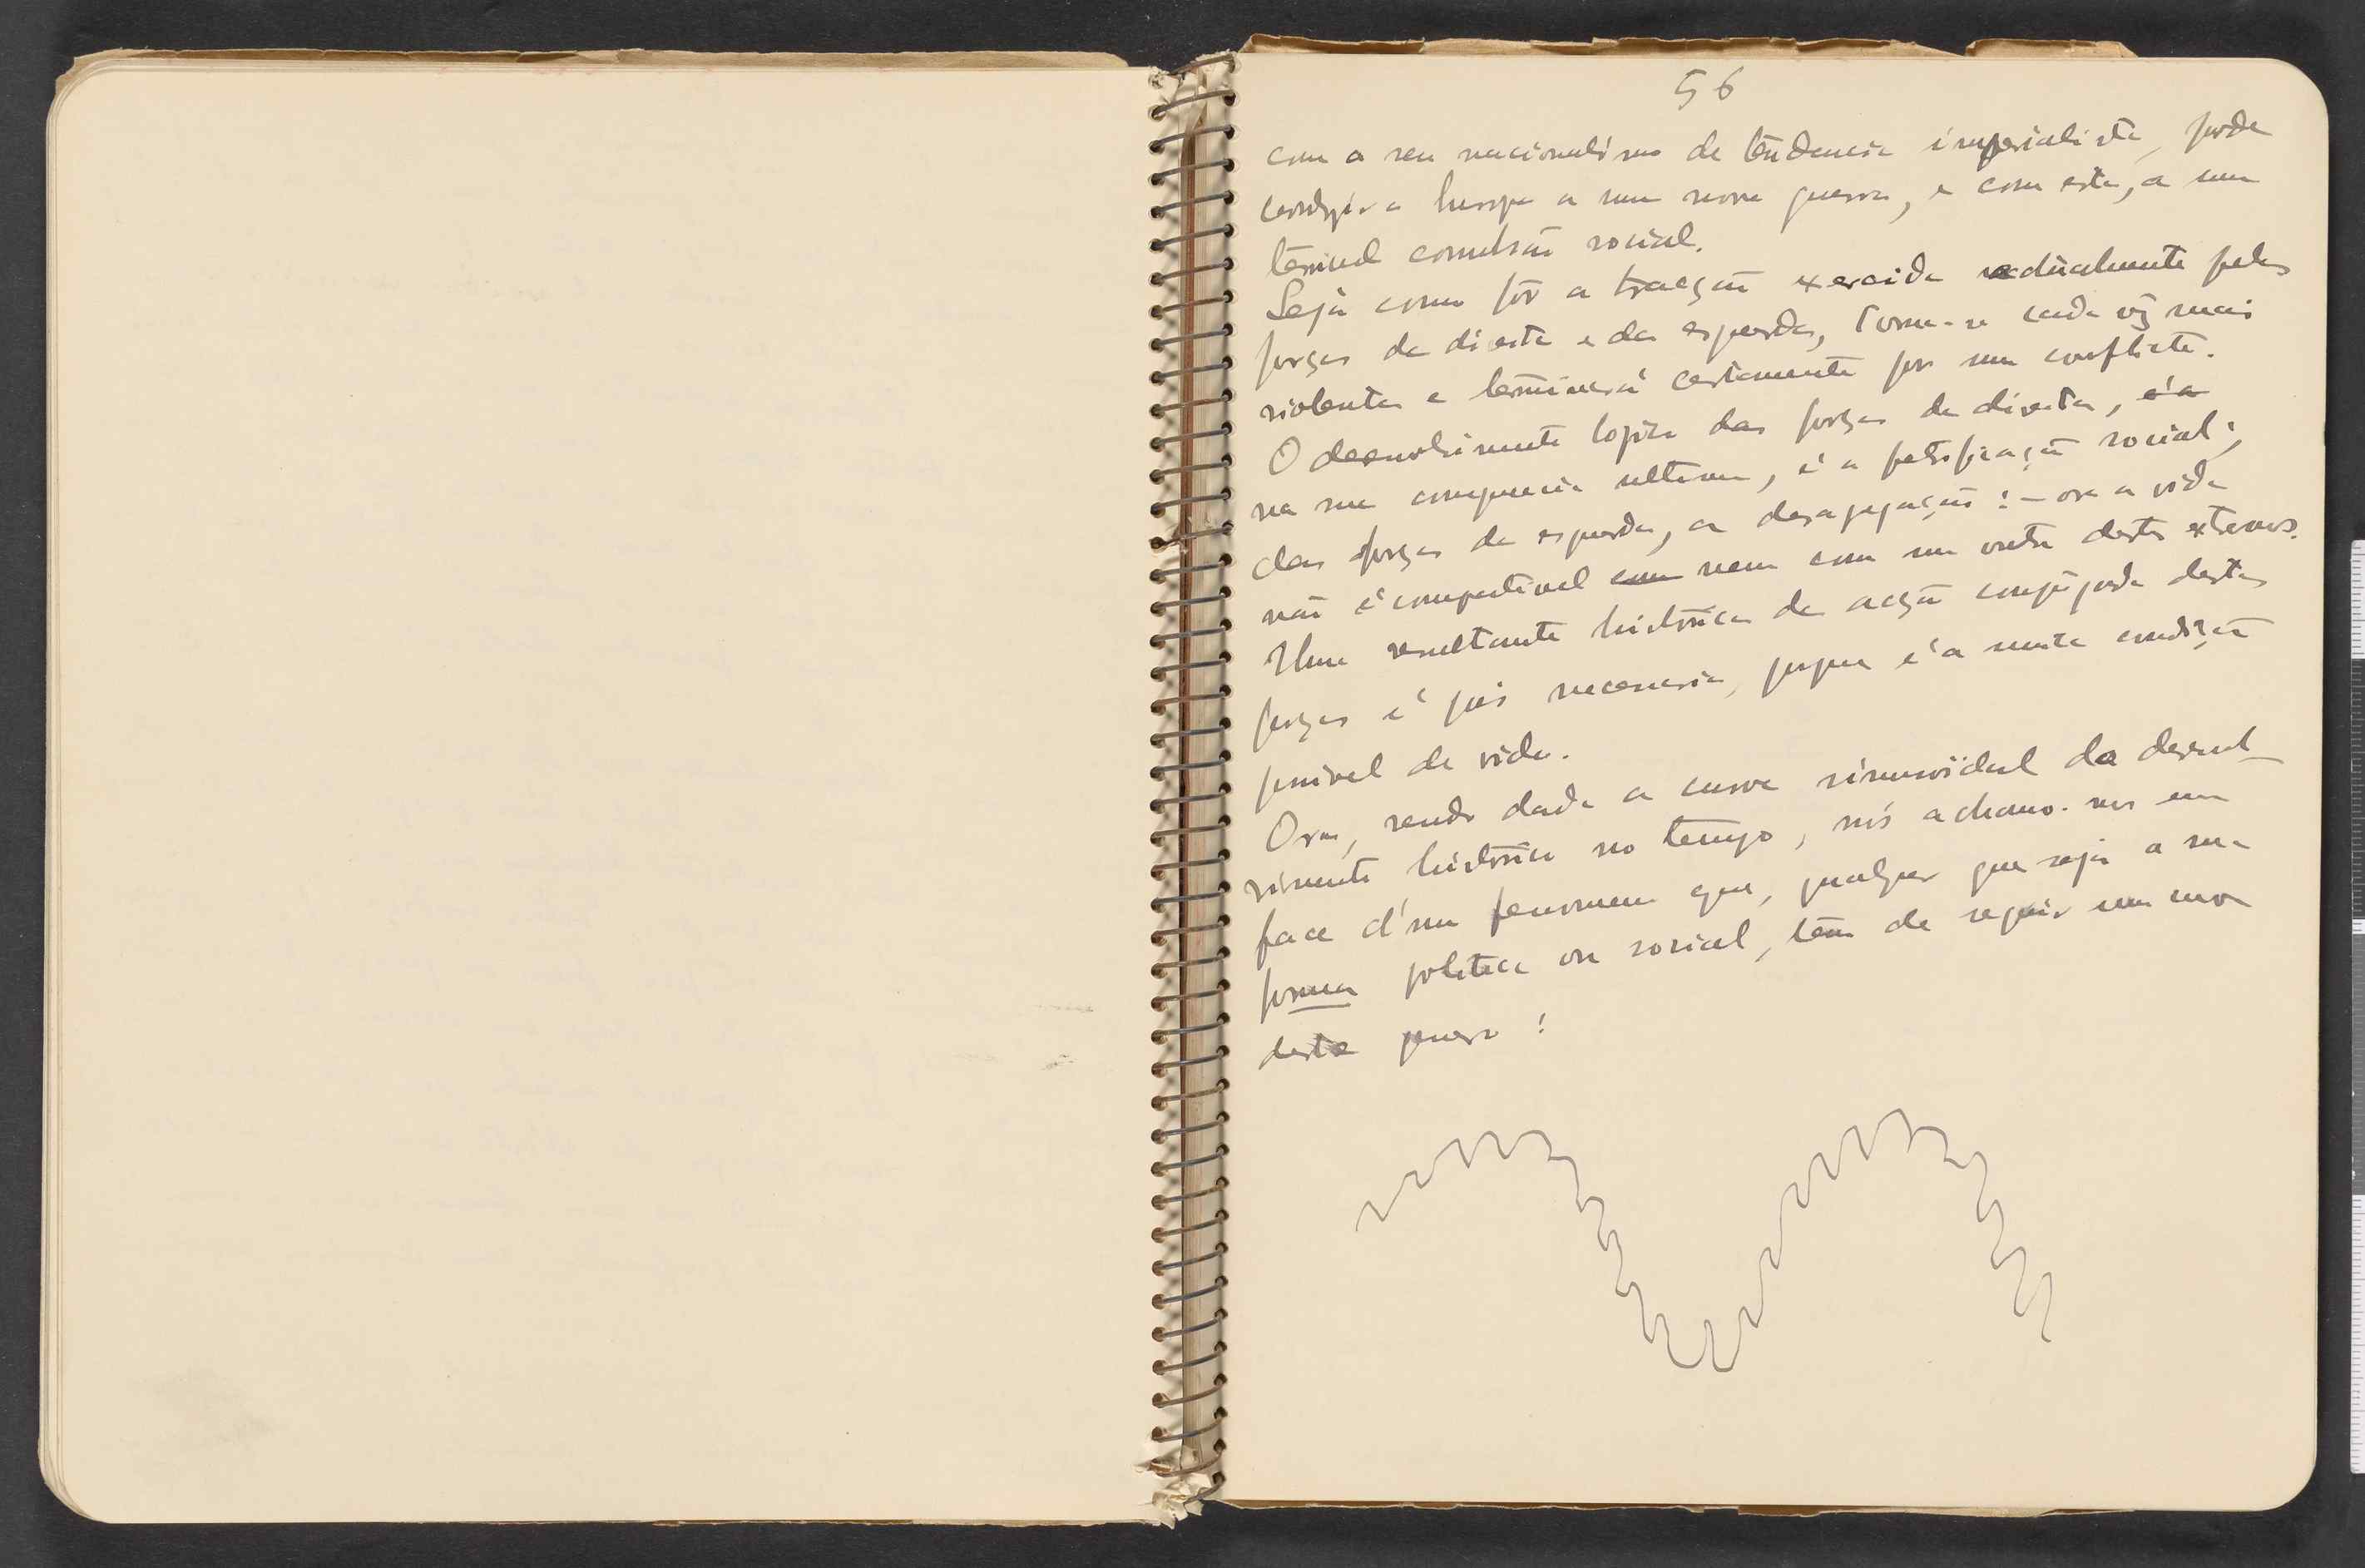 56
com o seu nacionalismo de tendencia imperialista, pode
conduzir a Europa a uma nova guerra, e com esta, a uma
terrivel convulsão social.
Seja como fôr a tracção exercida actualmente pelas
forças da direita e da esquerda, torna-se cada vêz mais
violenta e terminará certamente por um conflicto.
O desenvolvimento logico das forças da direita, é a
na sua consequencia ultima, é a petrificação social;
das forças da esquerda, a desagregação: – ora a vida
não é compativel com nem com um outro destes extremos.
Uma resultante historica da acção conjugada destas
forças é pois necessaria, porque é a unica condição
possivel de vida.
Ora, sendo dada a curva sinusoidal do desenvol-
vimento historico no tempo, nós achamo-nos em
face d'um fenomeno que, qualquer que seja a sua
forma politica ou social, têm de seguir uma curva
deste genero: